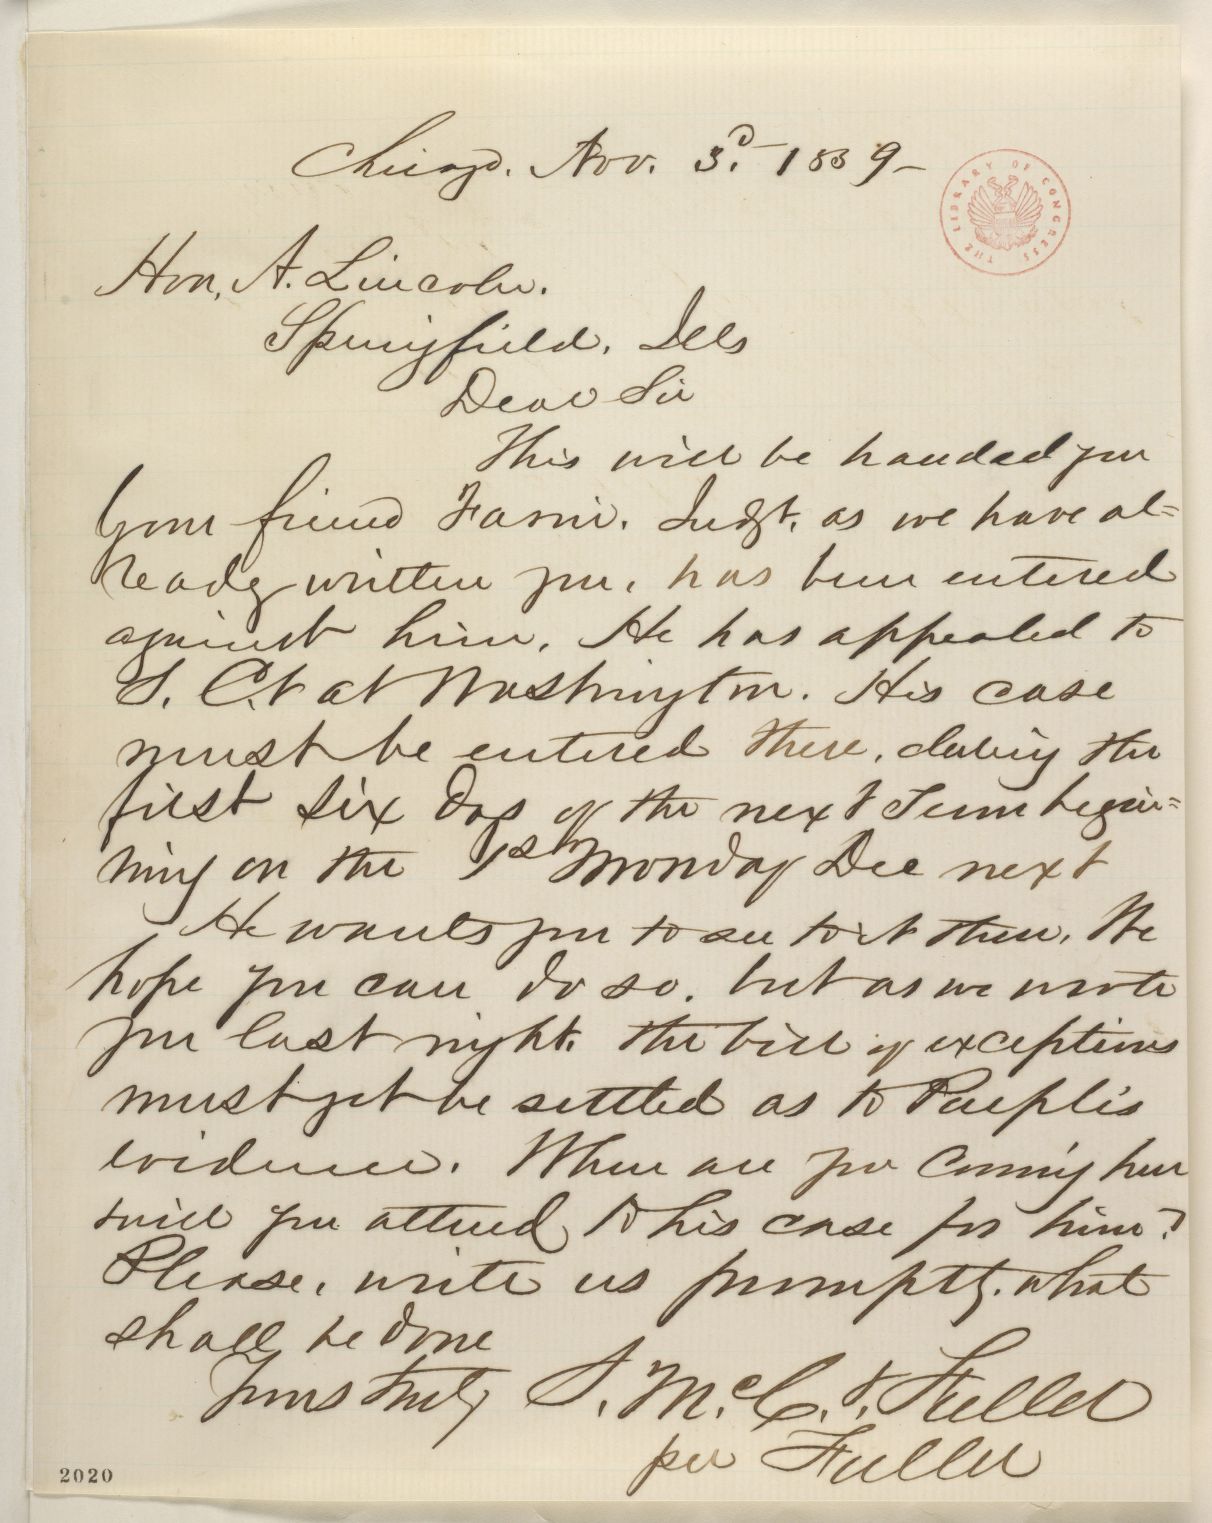 Chicago. Nov. 3.d 1859-
THE LIBRARY OF CONGRESS
Hon. A. Lincoln.
Springfield, Ills
Dear Sir
This will be handed you
by our friend Judgt. as we have al=
ready written you, has been entered
against him. He has appealed to
S. C.t at Washington. His case
must be entered there, during the
first six days of the next Term begin=
ning on the 1st Monday Dec next
He wants you to see to it then. We
hope you can do so. but as we wrote
you last night. the bill of exceptions
must yet be settled as to
evidence. When are you coming here
will you attend to his case for him?
Please, write us promptly. what
shall be done
Yours truly S. Mc. C. & Fuller
per Fuller
2020